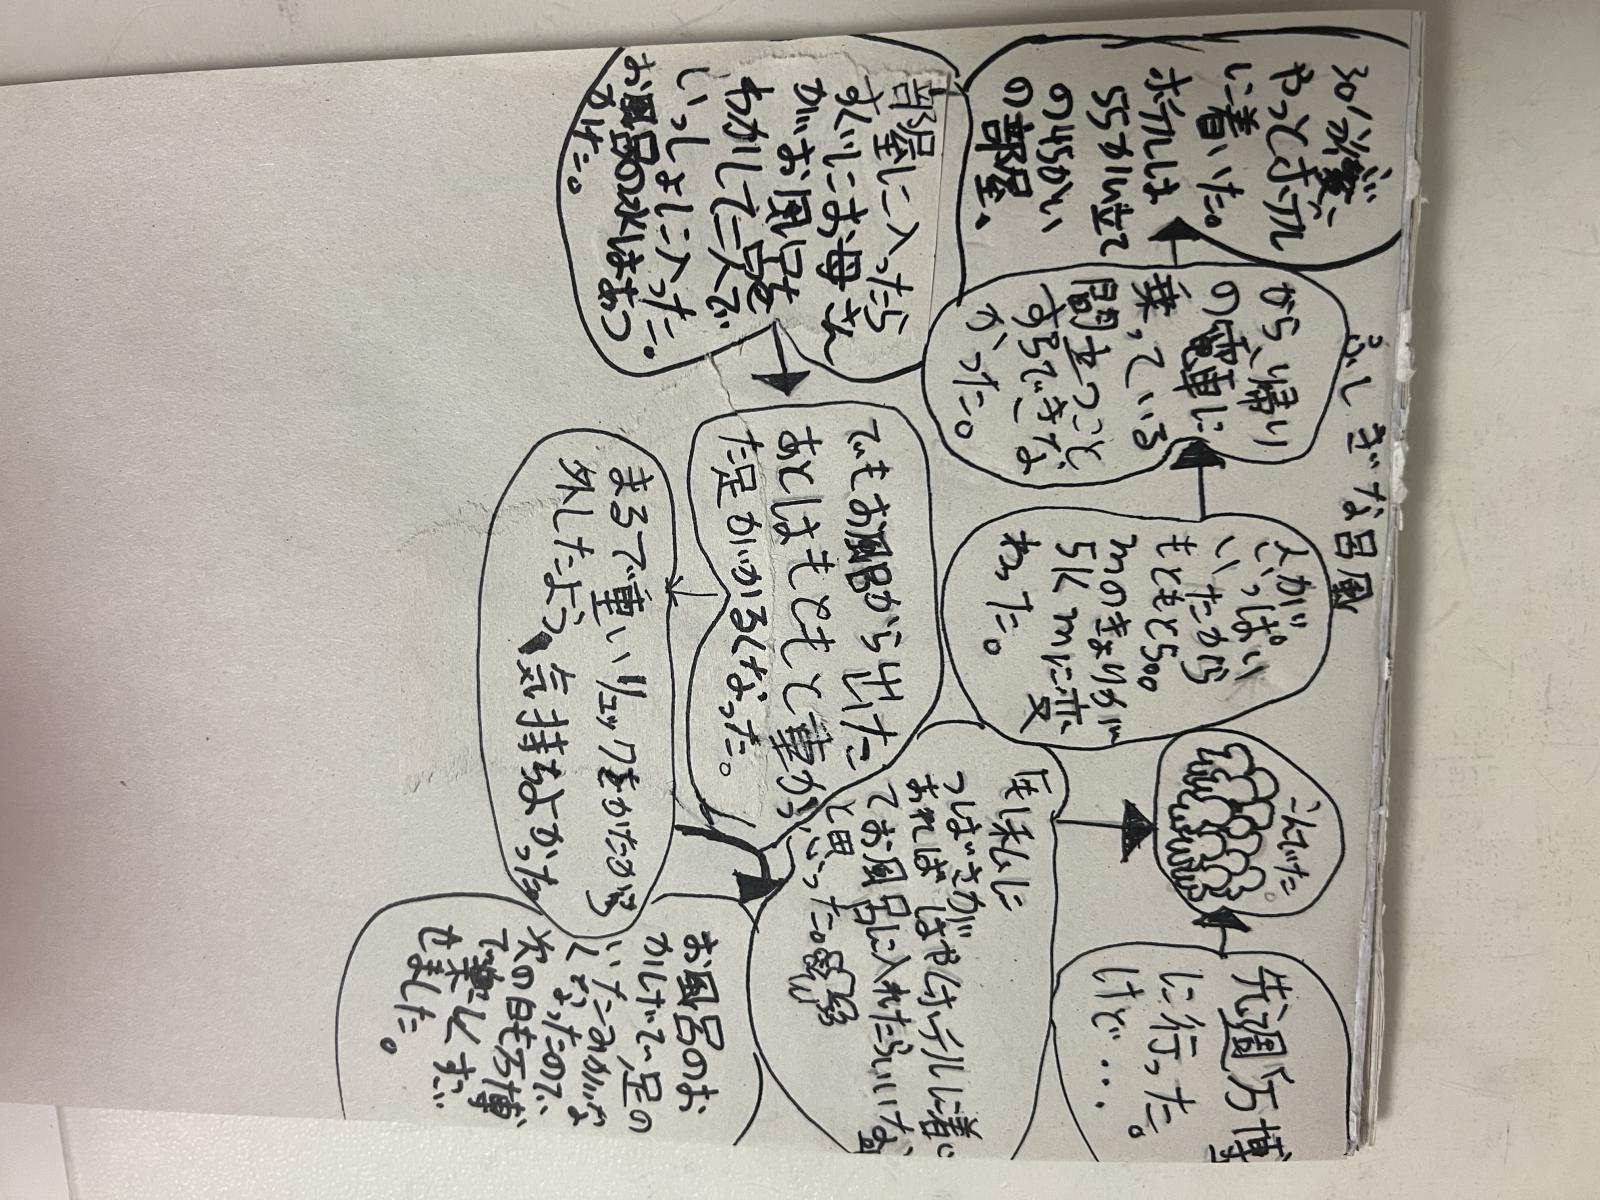 ふしぎな呂風
先週万博
に行った。
けど・・・
こんでた。
人が
いっぱい
いたから
もともと500
mのきょりが
5kmに変
わった。
から、帰り
の電車に
乗っている
間立つこと
すらできな
かった。
30分後、
やっとホテル
に着いた。
ホテルは
55かい立て
の45かい
の部屋。
部屋に入ったら
すぐにお母さん
がお風呂を
わかして二人で
いっしょに入った。
お風呂の水はあつ
かけた。
でもお風呂から出た
あとはもともと重かっ
た足がかるくなった。
まるで重いリュックをかたから
外したよう気持ちよかった
私に
つばさが
あればはやくホテルに着い
てお風呂に入れたらいいな
と思った。
お風呂のお
かげで足の
いたみがな
くなったので
次の日も万博
で楽しくすご
せました。